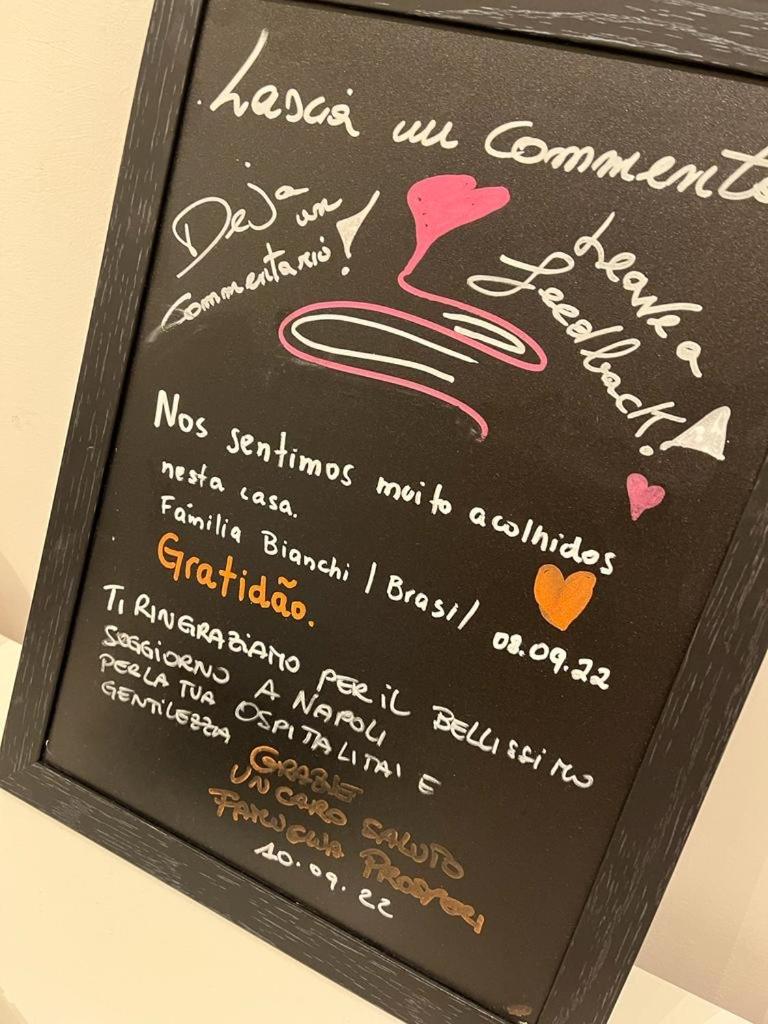 Lascia un commento
Deja un
commentario!
Leave a
feedback!
Nos sentimos muito acolhidos
nesta casa.
Família Bianchi / Brasil 08.09.22
Gratidão.
TI RINGRAZIAMO PER IL BELLISSIMO
SOGGIORNO A NAPOLI
PER LA TUA OSPITALITA' E
GENTILEZZA
GRAZIE
UN CARO SALUTO
FAMIGLIA PROSPERI
10.09.22